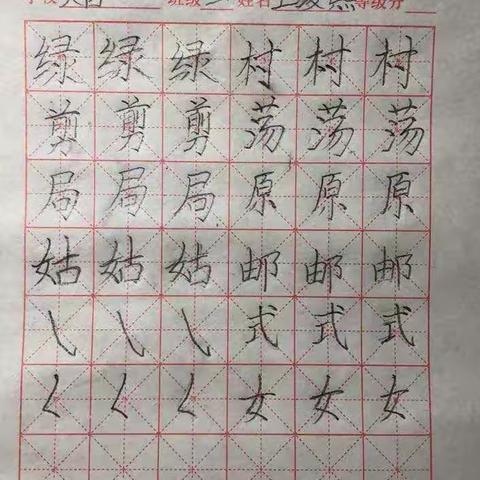 学校 班级 姓名 等级分
绿 绿 绿 村 村 村
剪 剪 剪 荡 荡 荡
局 局 局 原 原 原
姑 姑 姑 邮 邮 邮
㇂ ㇂ ㇂ 式 式 式
㇛ ㇛ ㇛ 女 女 女